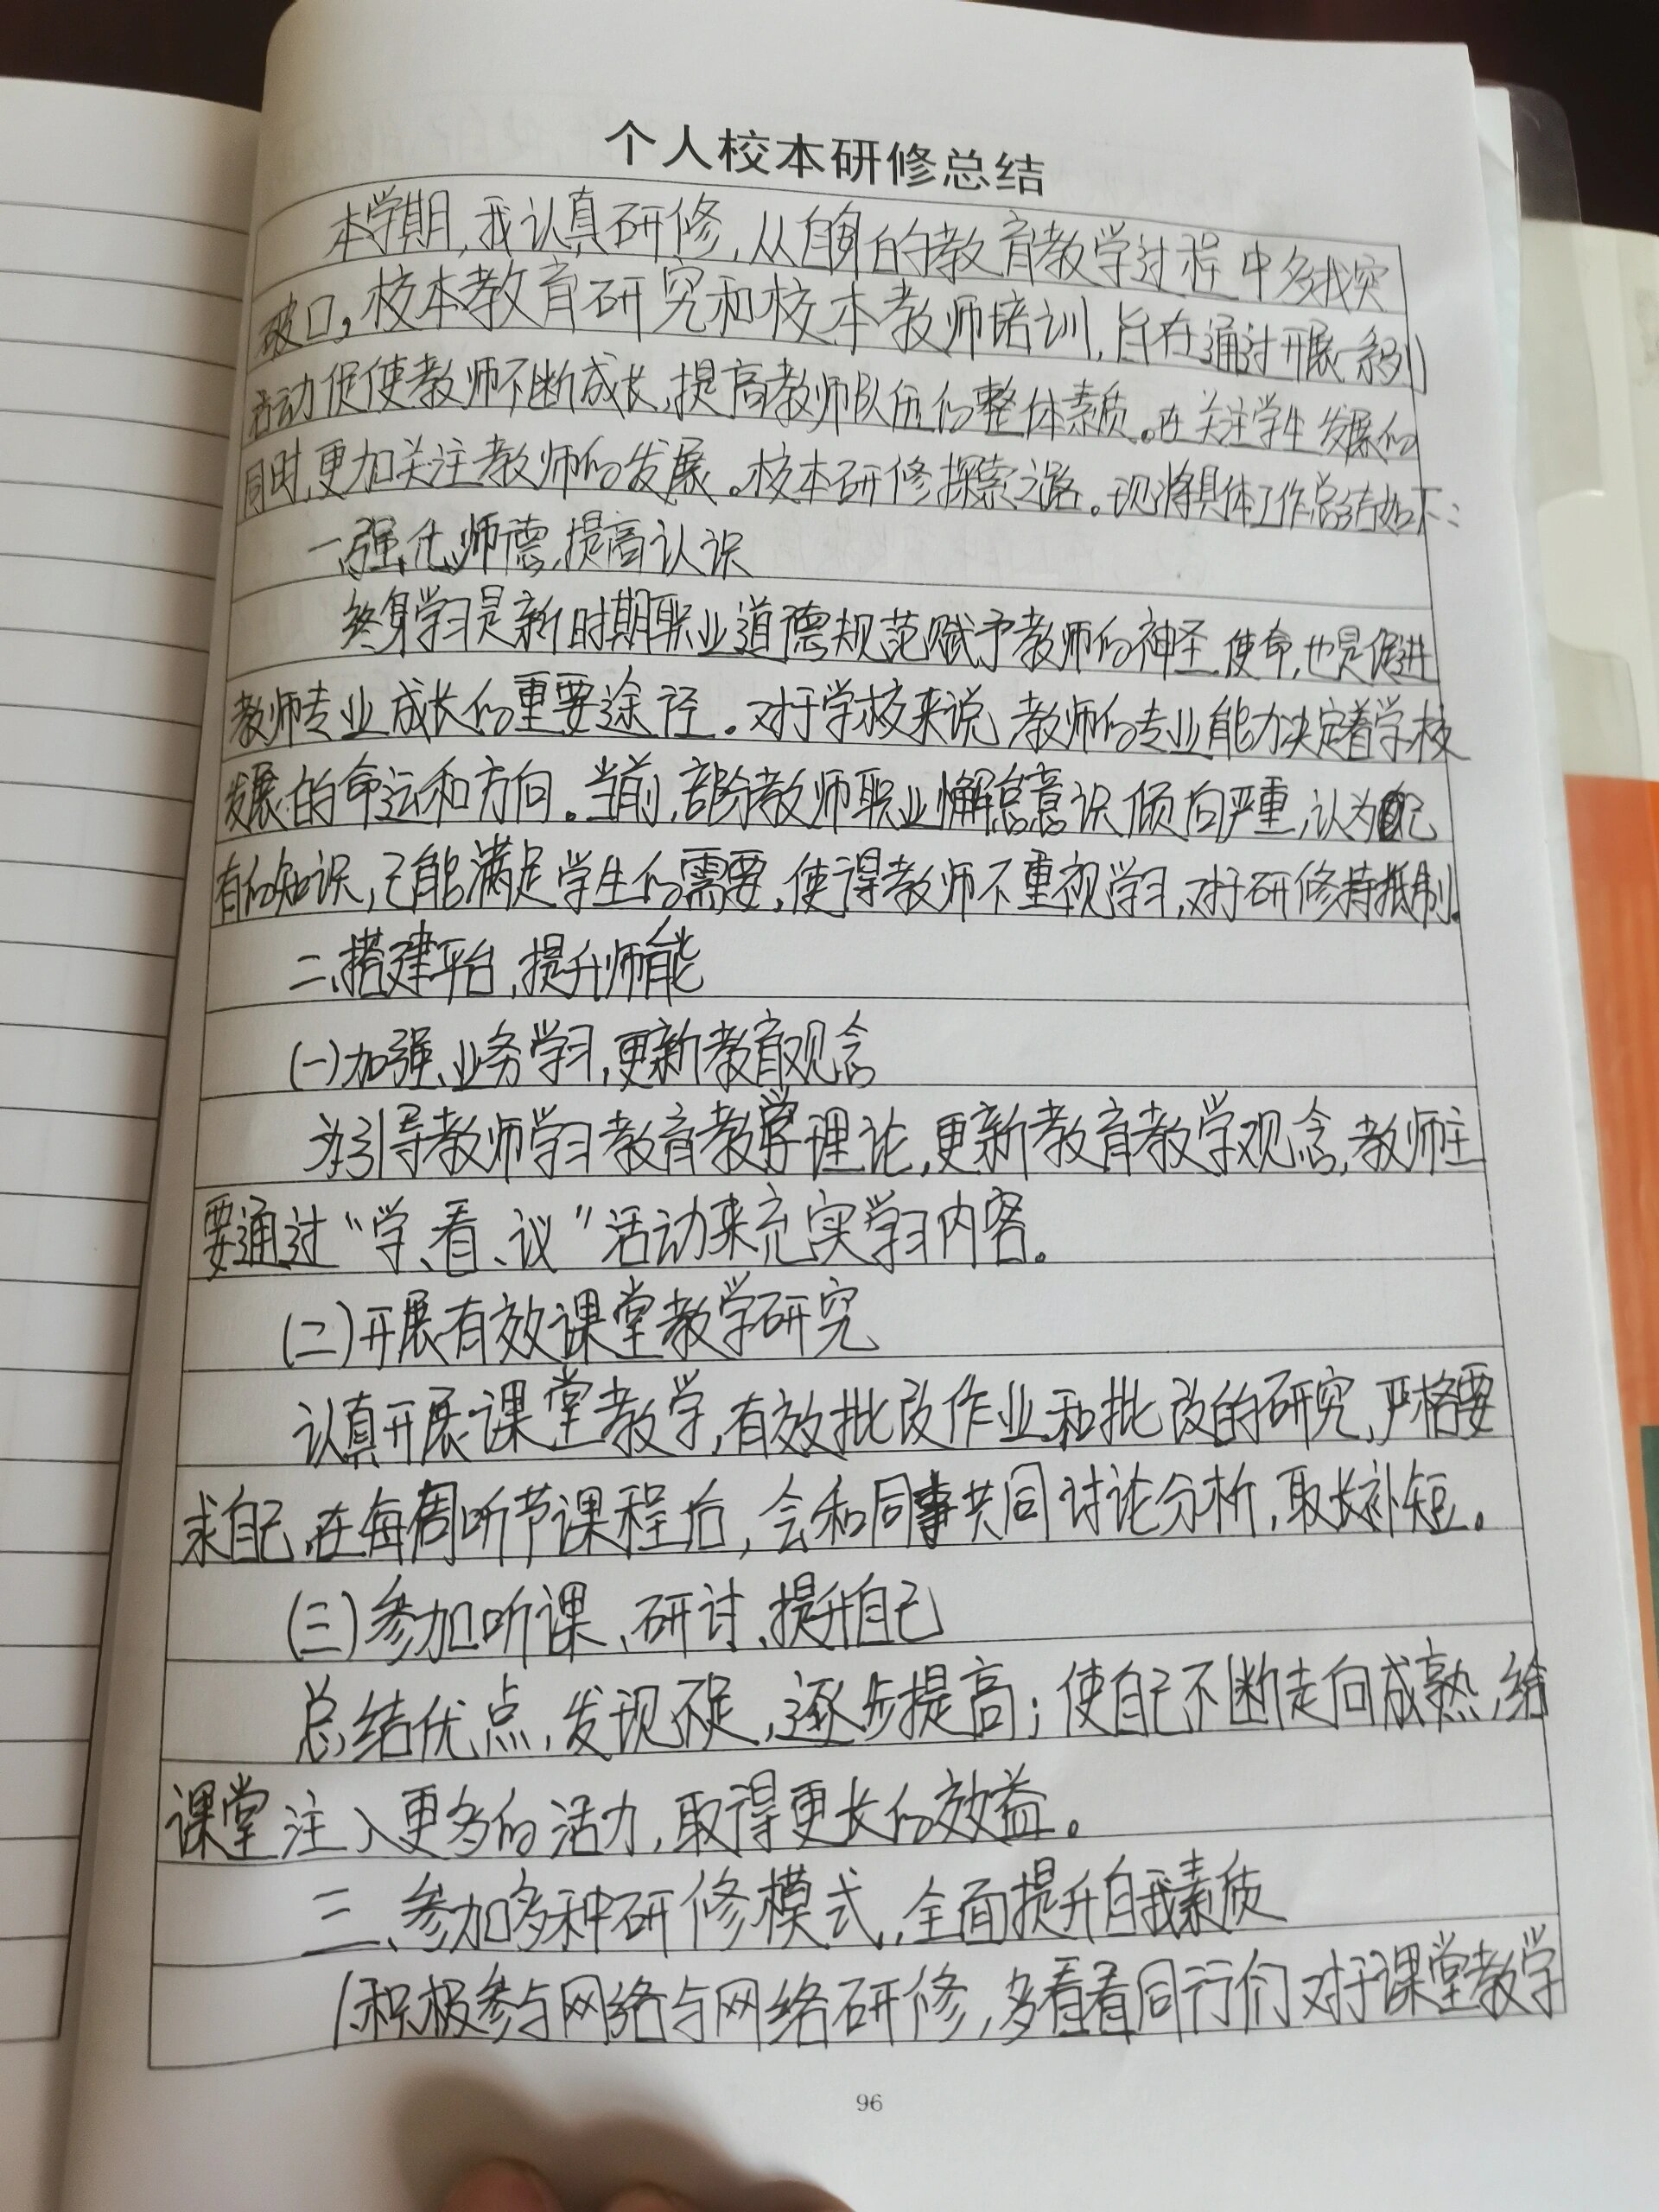 个人校本研修总结
本学期,我认真研修,从自身的教育教学过程中多找突
破口,校本教育研究和校本教师培训,旨在通过开展一系列
活动促使教师不断成长,提高教师队伍的整体素质。在关注学生发展的
同时,更加关注教师的发展。校本研修探索之路。现将具体工作总结如下:
一、强化师德,提高认识
终身学习是新时期职业道德规范赋予教师的神圣使命,也是促进
教师专业成长的重要途径。对于学校来说,教师的专业能力决定着学校
发展的命运和方向。当前,部分教师职业懈怠意识倾向严重,认为自己
有的知识,已能满足学生的需要,使得教师不重视学习,对于研修持抵制。
二、搭建平台,提升师能
(一)加强业务学习,更新教育观念
为引导教师学习教育教学理论,更新教育教学观念,教师主
要通过“学、看、议”活动来充实学习内容。
(二)开展有效课堂教学研究
认真开展课堂教学,有效批改作业和批改的研究,严格要
求自己,在每周听节课程后,会和同事共同讨论分析,取长补短。
(三)参加听课、研讨、提升自己
总结优点,发现不足,逐步提高;使自己不断走向成熟,给
课堂注入更多的活力,取得更长的效益。
三、参加多种研修模式,全面提升自我素质
1.积极参与网络与网络研修,多看看同行们对于课堂教学
96